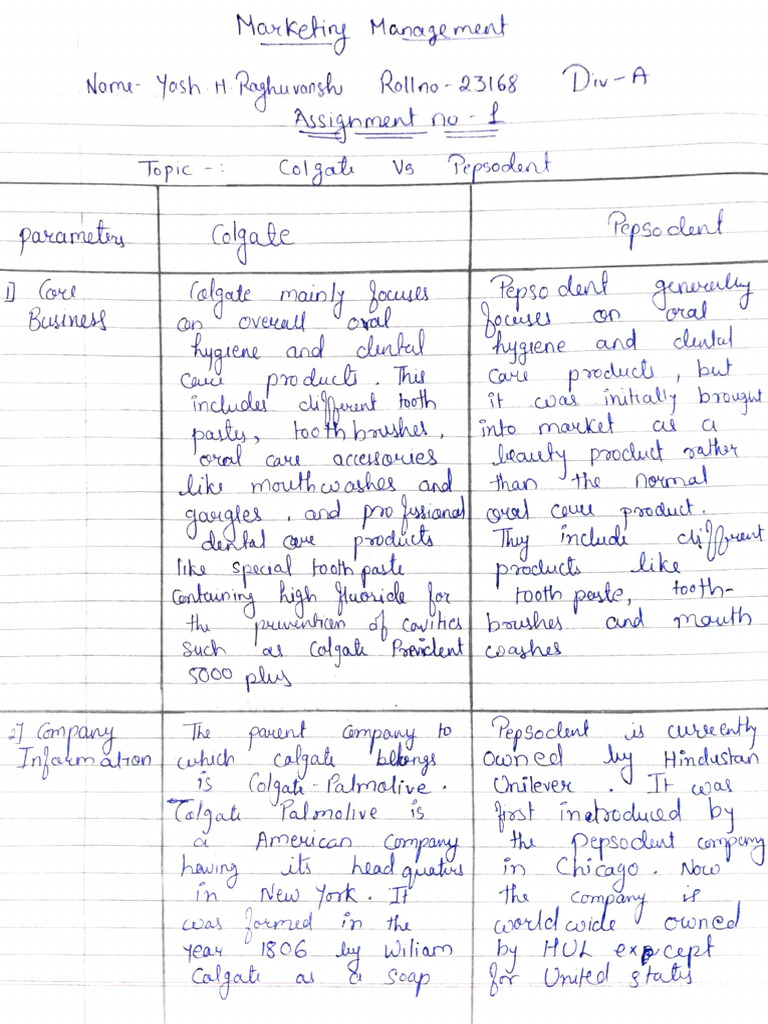 Marketing Management
Name- Yash H. Raghuvanshi Rollno-23168 Div-A
Assignment no - 1
Topic -: Colgate Vs Pepsodent
Parameters
Colgate
Pepsodent
1] Core
Business
Colgate mainly focuses
on overall oral
hygiene and dental
care products. This
includes different tooth
pasty, toothbrushes,
oral care accessories
like mouthwashes and
gargles, and professional
dental care products
like special tooth paste
containing high fluoride for
the prevention of cavities
such as Colgate Prevident
5000 plus
Pepsodent generally
focuses on oral
hygiene and dental
care products, but
it was initially brought
into market as a
beauty product rather
than the normal
oral care product.
They include different
products like
tooth paste, tooth-
brushes and mouth
washes
2] Company
Information
The parent company to
which colgate belongs
is Colgate-Palmolive.
Colgate Palmolive is
a American Company
having its head quaters
in New York. It
was formed in the
year 1806 by Wiliam
Colgate as a soap
Pepsodent is currently
owned by Hindustan
Unilever. It was
first introduced by
the Pepsodent company
in Chicago. Now
the company is
worldwide owned
by HUL except
for United states